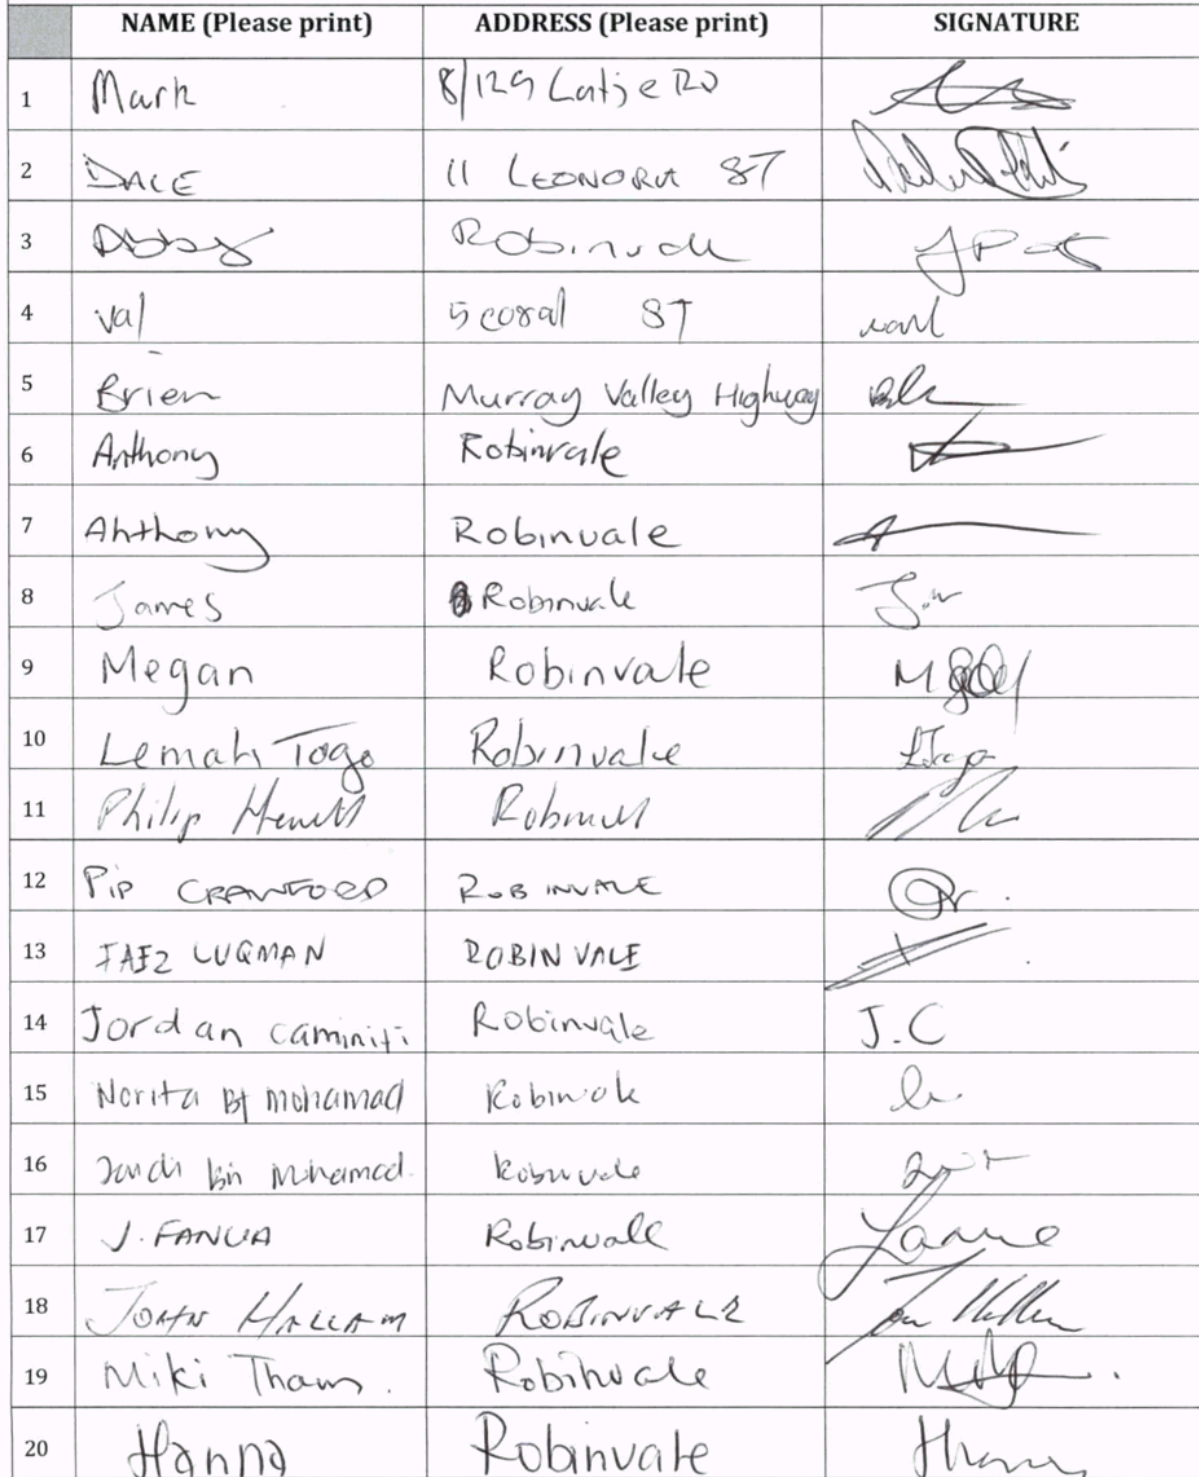 NAME (Please print) ADDRESS (Please print) SIGNATURE
1 Mark 8/129 Latje RD
2 DALE 11 LEONORA ST
3 Abby Robinvale
4 Val 5 coral ST
5 Brien Murray Valley Highway
6 Anthony Robinvale
7 Anthony Robinvale
8 James Robinvale
9 Megan Robinvale
10 Lemah Togo Robinvale LTogo
11 Philip Robinvale
12 PIP CRAWFORD ROBINVALE
13 FAEZ LUQMAN ROBINVALE
14 Jordan caminiti Robinvale J.C
15 Norita Bt mohamad Robinvale
16 bin Mohamad Robinvale
17 J. FANUA Robinvale
18 JOHN HALLAM ROBINVALE
19 Miki Tham. Robinvale
20 Hanna Robinvale